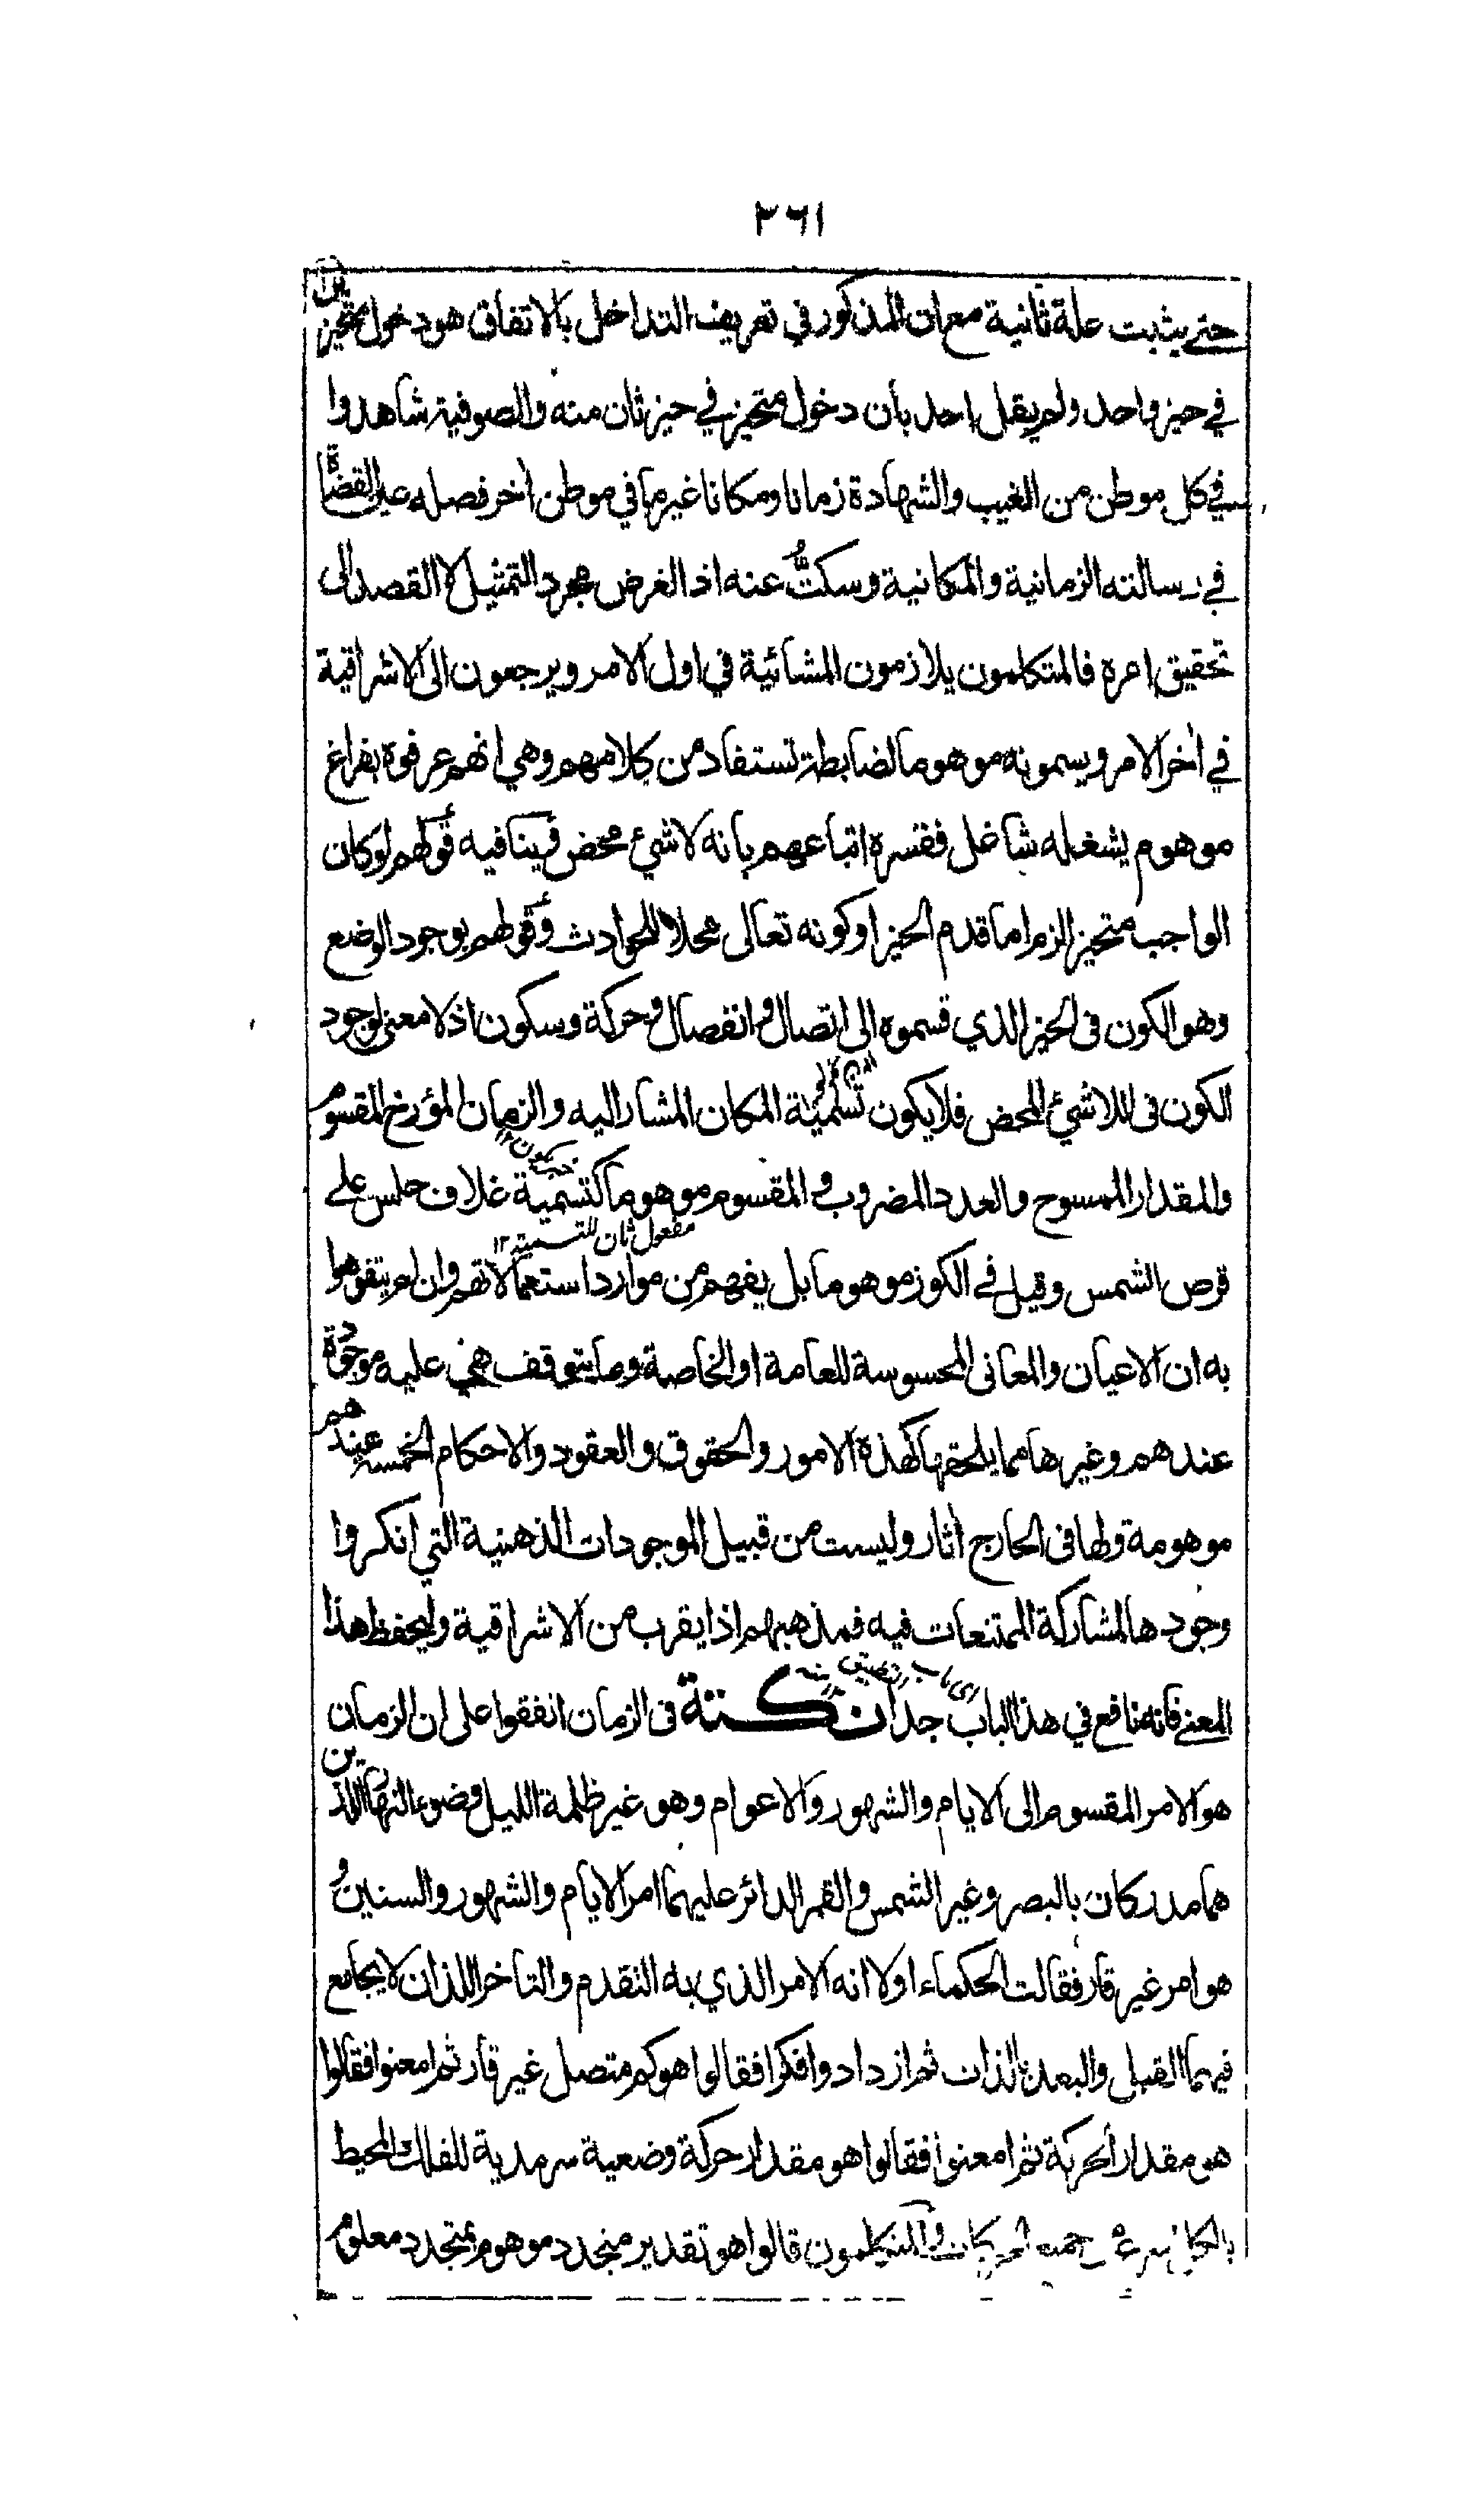 ٣٦١
حتى يثبت علة ثانية مع ان المذكور في تعريف التداخل بالاتفاق هو دخول متحيزين
في حيز واحد ولم يقل احد بان دخول متحيز في حيز ثان منه والصوفية شاهدوا
في كل موطن من الغيب والشهادة زمانا ومكانا غير ما في موطن اخر فصله عين القضاة
في رسالته الزمانية والمكانية وسكتُّ عنه اذ الغرض مجرد التمثيل لا القصد الى
تحقيق امره فالمتكلمون يلازمون المشائية في اول الامر ويرجعون الى الاشراقية
في أخر الامر ويسمونه موهوما لضابطة تستفاد من كلامهم وهي انهم عرفوه بفراغ
موهوم يشغله شاغل ففسره اتباعهم بانه لا شيئ محض فينافيه قولهم لو كان
الواجب متحيز الزم اما قدم الحيز او كونه تعالى محلا للحوادث وقولهم بوجود الوضع
وهو الكون في الحيز الذي قسموه الى اتصال وانفصال وحركة وسكون اذ لا معنى لوجود
الكون في اللاشيئ المحض فلا يكون تسمية المكان المشار اليه والزمان المؤرخ المقسوم
والمقدار الممسوح والعدد المضروب والمقسوم موهوما كتسمية غلاف حلس على
مفعول ثان للتسمية ١٢
قرص الشمس وقيل في الكوز موهوما بل يفهم من موارد استعمالاتهم وان لم يتفوهوا
به ان الاعيان والمعاني المحسوسة للعامة او الخاصة وما يتوقف هي عليه موجودة
عندهم وغيرها مما يلحقها كهذه الامور والحقوق والعقود والاحكام الخمسة عندهم
موهومة ولها في الخارج أثار وليست من قبيل الموجودات الذهنية التي انكروا
وجودها لمشاركة الممتنعات فيه فمذهبهم اذا يقرب من الاشراقية وليحفظ هذا
المعنى فانه نافع في هذا الباب جدا نكتة في الزمان اتفقوا على ان الزمان
هو الامر المقسوم الى الايام والشهور والاعوام وهو غير ظلمة الليل وضوء النهار اللذين
هما مدركان بالبصر وغير الشمس والقمر الدائر عليهما امر الايام والشهور والسنين و
هو امر غير قار فقالت الحكماء اولا انه الامر الذي به التقدم والتاخر اللذان لا يجامع
فيهما القبل والبعد بالذات ثم ازدادوا فكرا فقالوا هو كم متصل غير قار ثم امعنوا فقالوا
هو مقدار الحركة ثم امعنوا فقالوا هو مقدار حركة وضعية سرمدية للفلك المحيط
بالكل جميع الحركات والمتكلمون قالوا هو تقدير متجدد موهوم بمتجدد معلوم